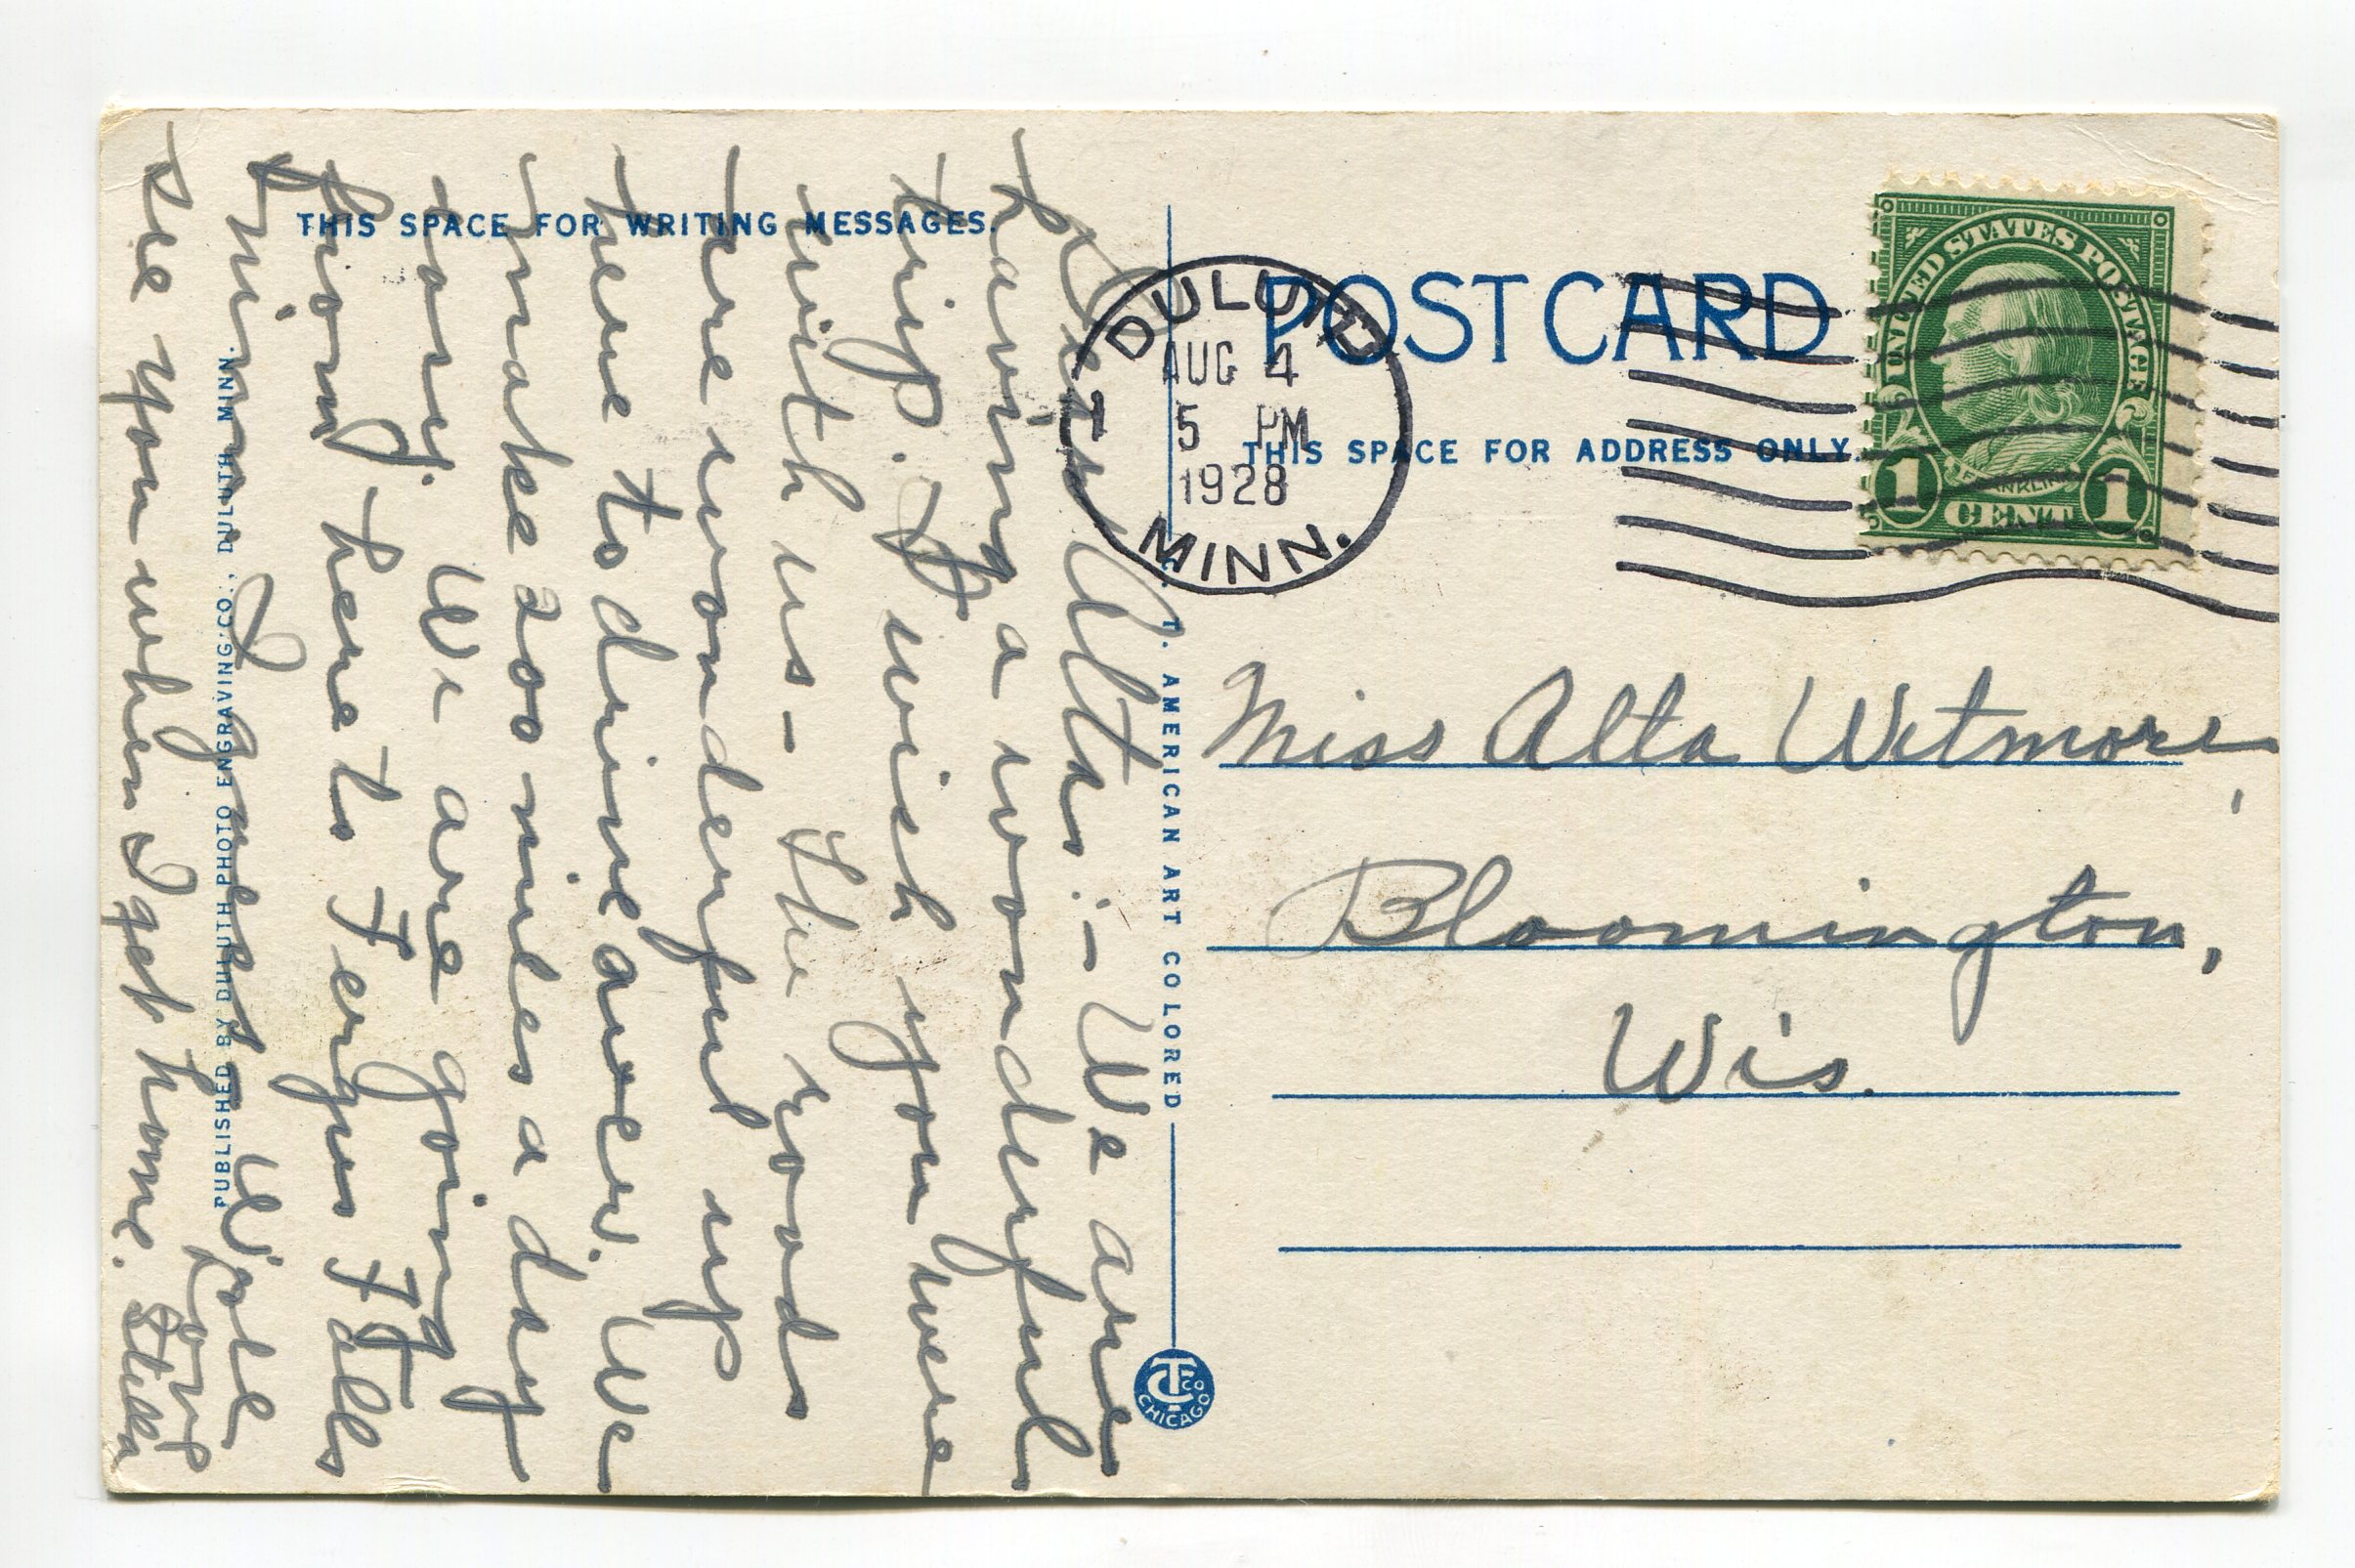 THIS SPACE FOR WRITING MESSAGES.
Dear Alta:- We are
having a wonderful
trip. I wish you were
with us- The roads
are wonderful up
here to drive over. We
make 200 miles a day
easy. We are going
from here to Fergus Falls
Minn. I guess. Will
see you when I get home.
Love
Stella
PUBLISHED BY DULUTH PHOTO ENGRAVING CO., DULUTH, MINN.
C. T. AMERICAN ART COLORED
POST CARD
THIS SPACE FOR ADDRESS ONLY.
DULUTH
AUG 4
5 PM
1928
MINN.
UNITED STATES POSTAGE
FRANKLIN
1 CENT 1
Miss Alta Wetmore,
Bloomington,
Wis.
CT CO
CHICAGO